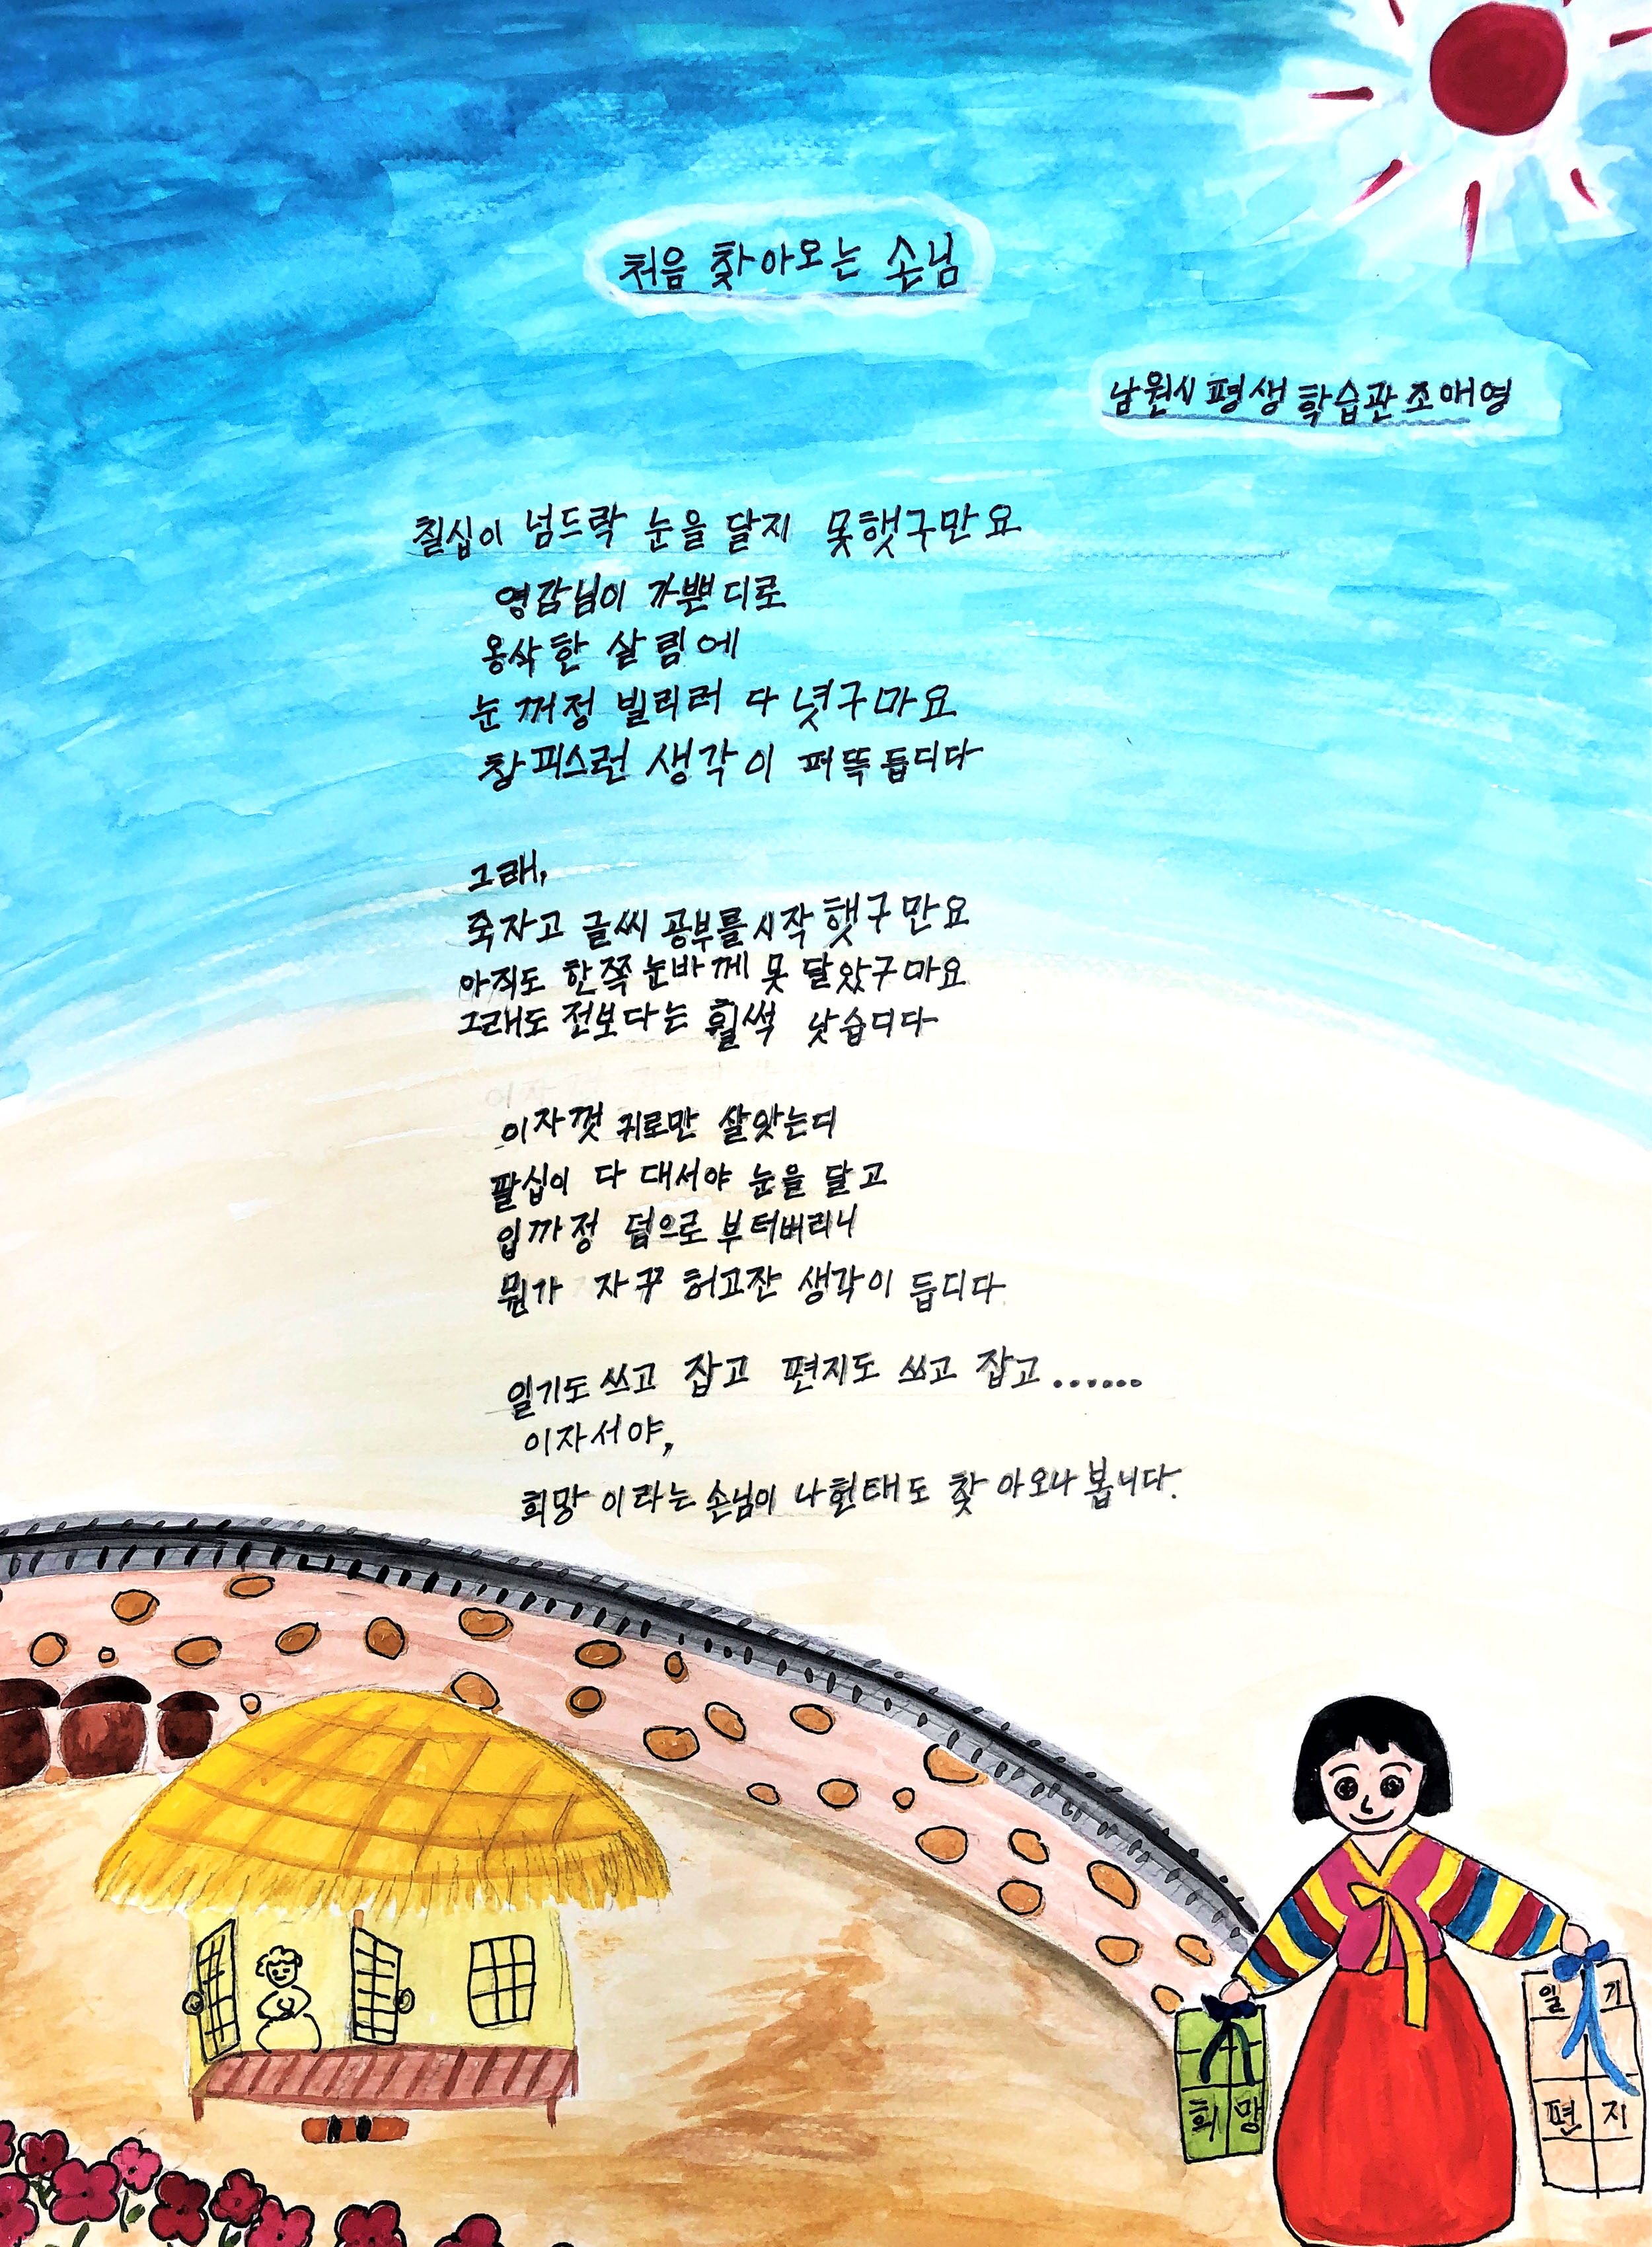 처음 찾아오는 손님
남원시 평생학습관 조애영
칠십이 넘드락 눈을 달지 못했구만요
영감님이 가뿐디로
옹삭한 살림에
눈꺼정 빌리러 다녓구마요
창피스런 생각이 퍼뜩 듭디다
그래,
죽자고 글씨 공부를 시작했구만요
아직도 한쪽 눈바께 못 달았구마요
그래도 전보다는 훨썩 낫습디다
이자껏 귀로만 살앗는디
팔십이 다 대서야 눈을 달고
입까정 덤으로 부터버리니
뭔가 자꾸 허고잔 생각이 듭디다
일기도 쓰고 잡고 편지도 쓰고 잡고......
이자서야,
희망이라는 손님이 나헌태도 찾아오나 봅니다.
희망
일기
편지